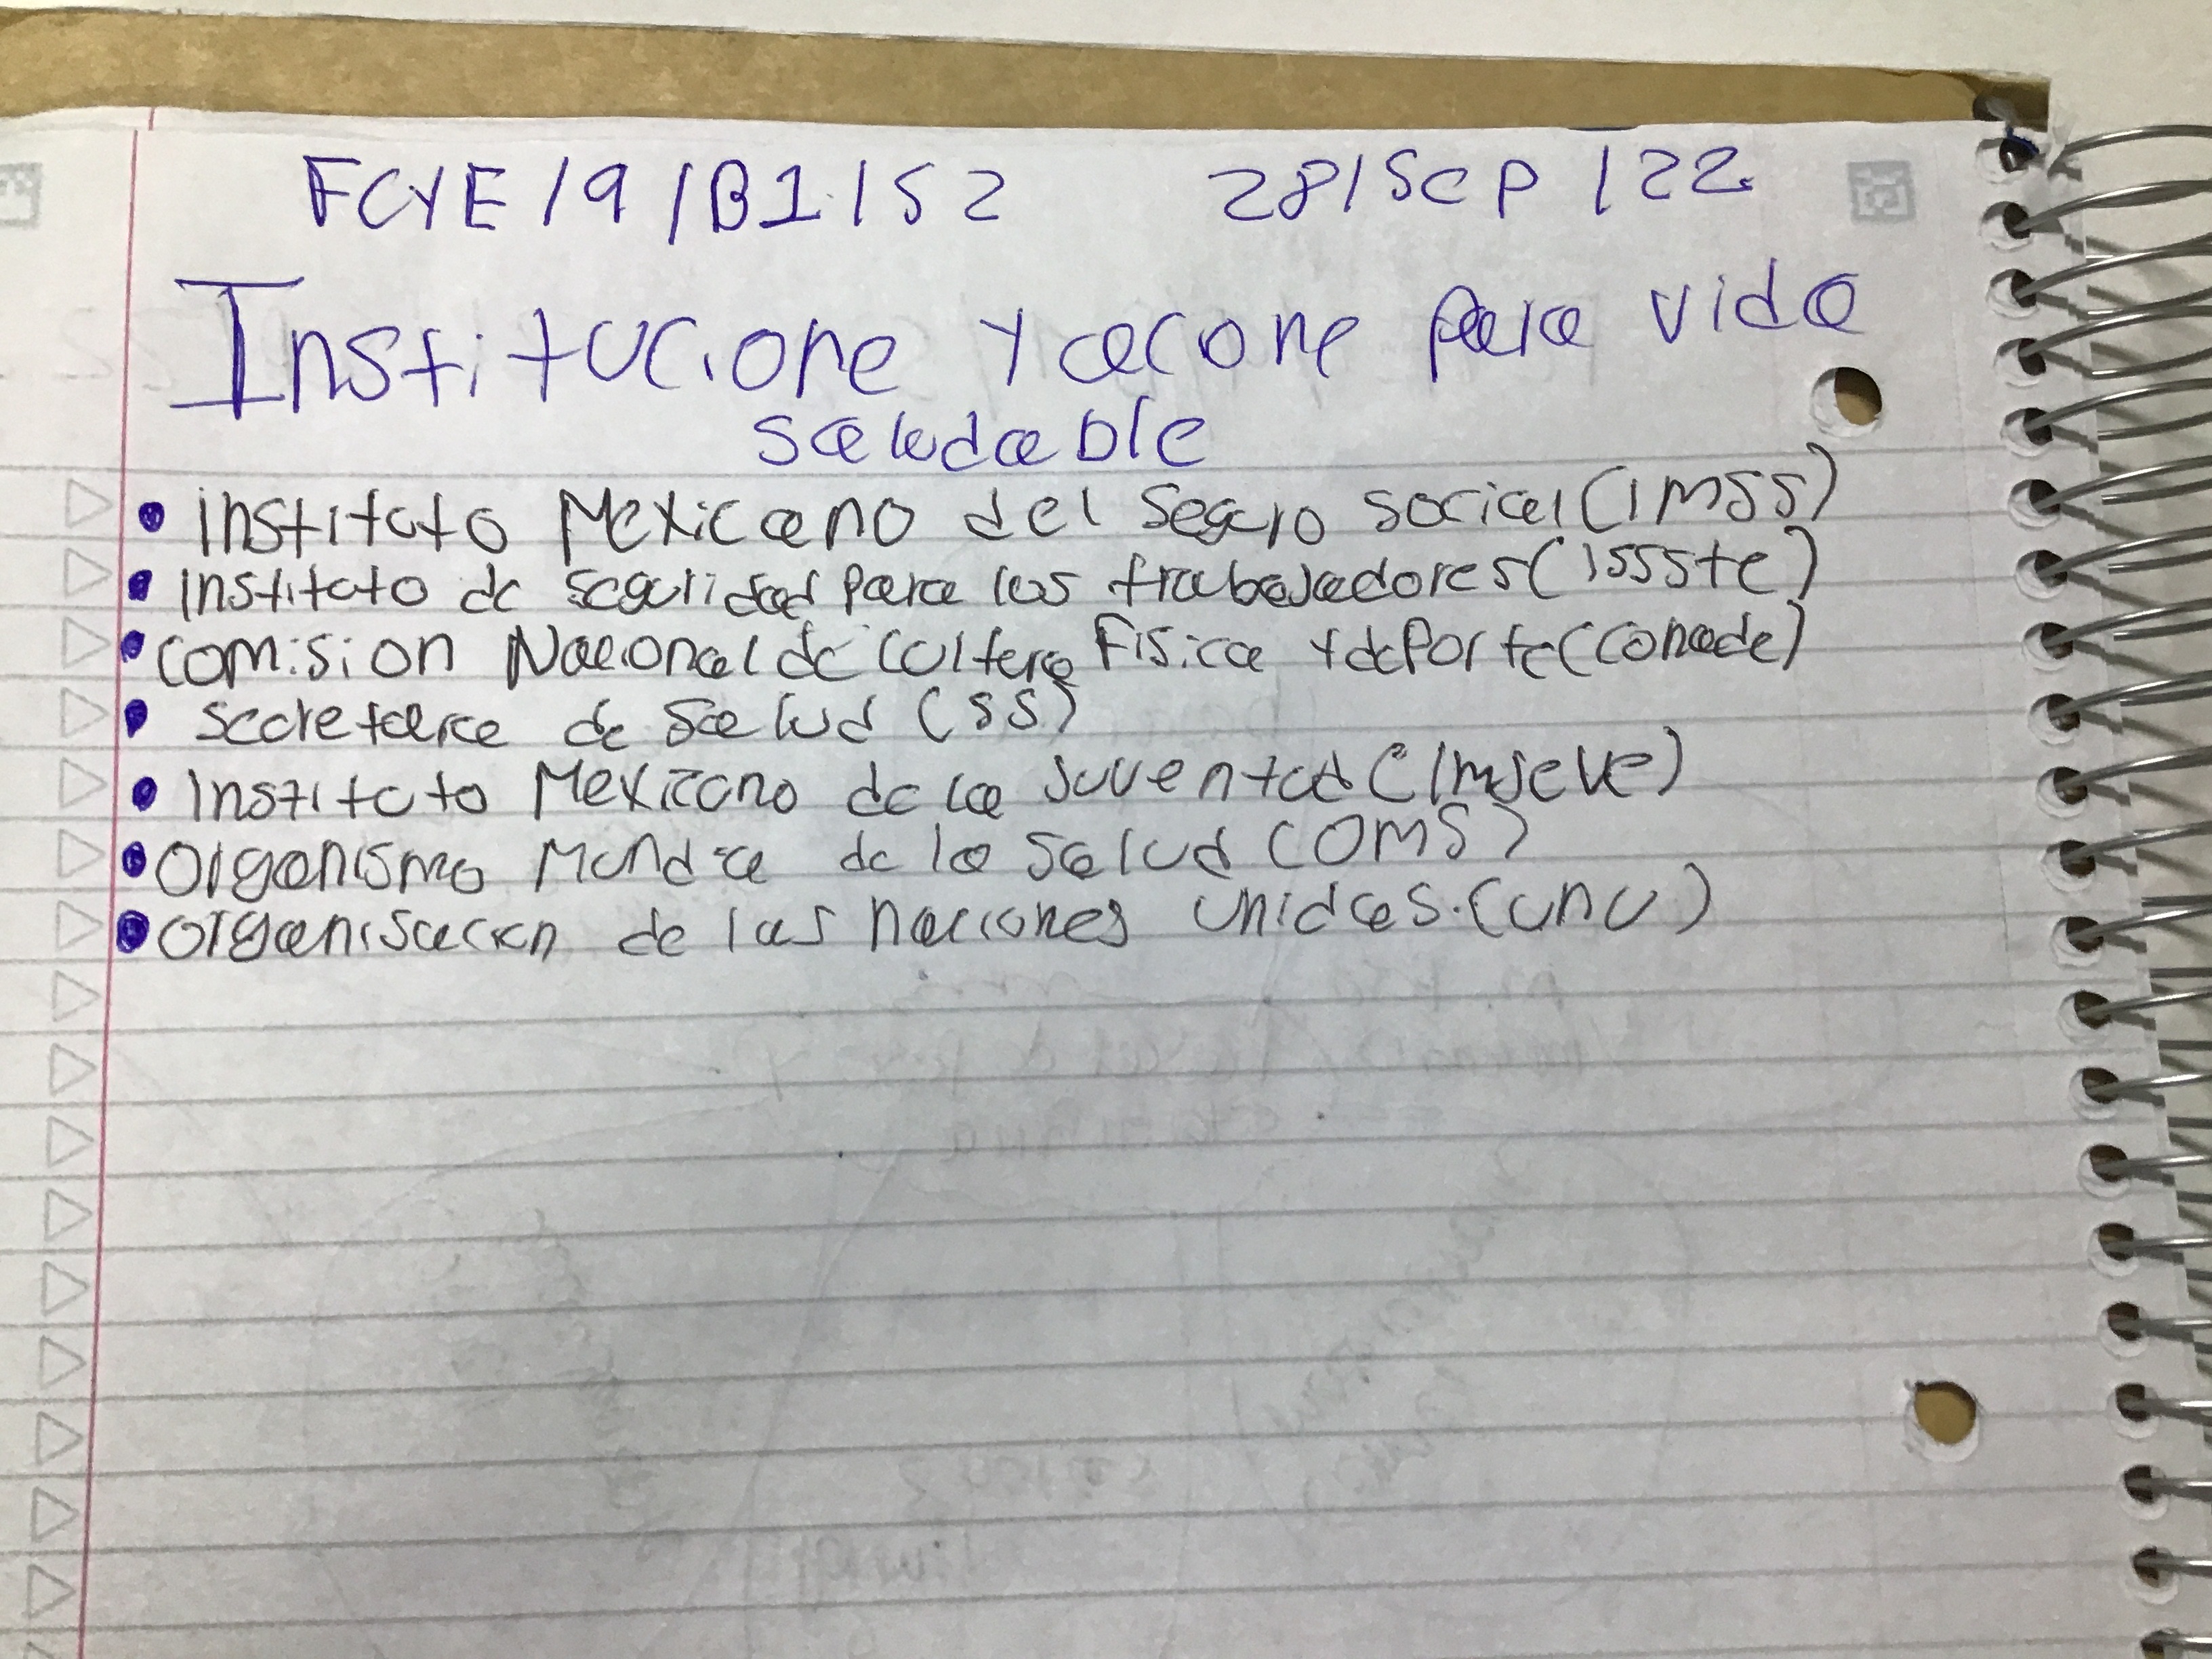 FCYE/9/B1/S2 28/Sep/22
Institucione y acione para vida
saludable
• instituto Mexicano del seguro social (IMSS)
• instituto de seguridad para los trabajadores (issste)
• comision Nacional de cultura Fisica y deporte (conade)
• secretaria de salud (SS)
• instituto Mexicano de la juventud (imjeve)
• organismo Mundia de la salud (OMS)
• organisacion de las naciones unidas. (unu)